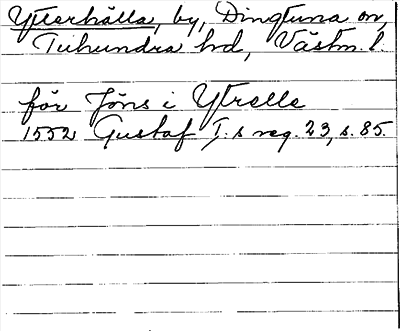 Ytterhälla, by, Dingtuna sn,
Tuhundra hd, Västm. l.
för Jöns i Ytrelle
1552 Gustaf I:s reg. 23, s. 85.